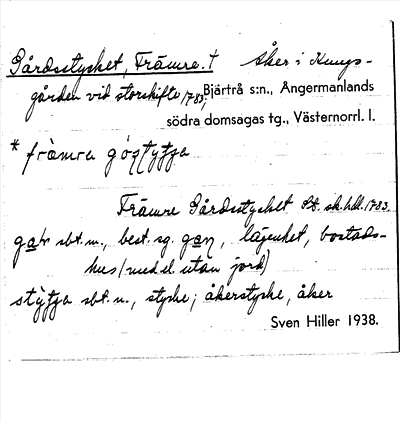 Gårdsstycket, Främre. † Åker i Kungs-
gården vid storskifte 1783, Bjärtrå s:n., Ångermanlands
södra domsagas tg., Västernorrl. l.
* fràmra
Främre Gårdsstycket Lt. sk. hdl. 1783.
sbt. m., best. sg. lägenhet, bostads-
hus (med el. utan jord)
sbt. n., stycke; åkerstycke, åker
Sven Hiller 1938.